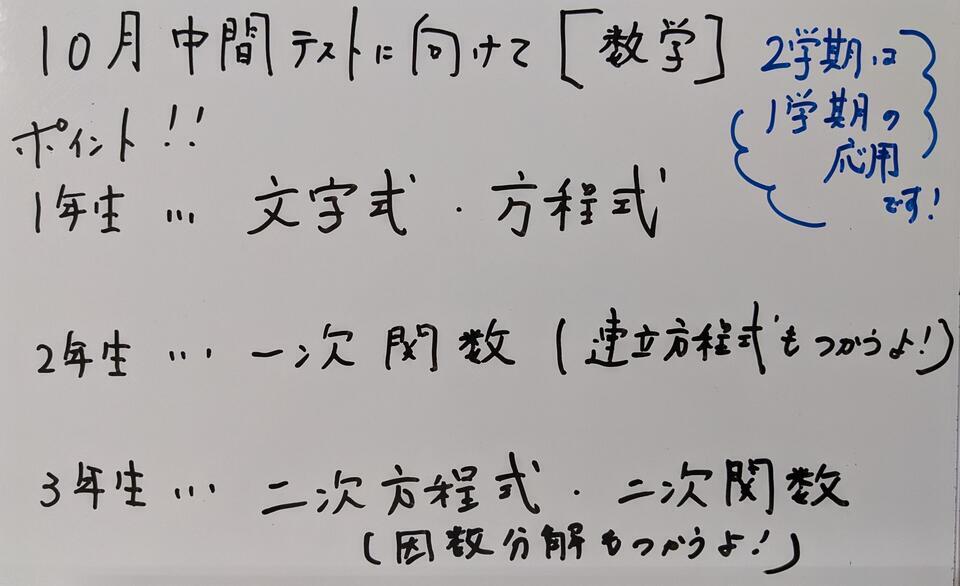 10月中間テストに向けて[数学]
2学期は
1学期の
応用
です!
ポイント!!
1年生…文字式・方程式
2年生…一次関数(連立方程式もつかうよ!)
3年生…二次方程式・二次関数
(因数分解もつかうよ!)